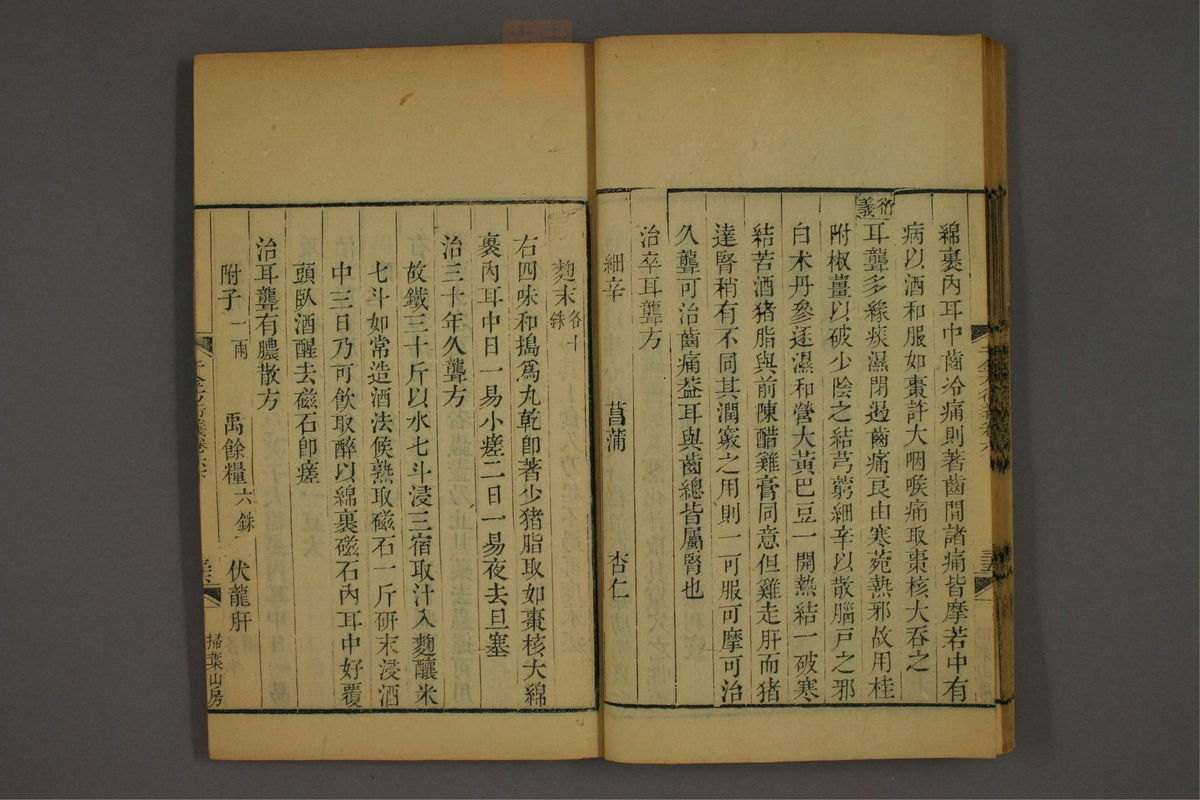 綿裹內耳中齒冷痛則著齒間諸痛皆摩若中有
病以酒和服如棗許大咽喉痛取棗核大吞之
衍義
耳聾多緣痰濕閉遏齒痛良由寒菀熱邪故用桂
附椒薑以破少陰之結芎藭細辛以散腦戸之邪
白术丹參逐濕和營大黃巴豆一開熱結一破寒
結苦酒猪脂與前陳醋雞膏同意但雞走肝而猪
達腎稍有不同其潤竅之用則一可服可摩可治
久聾可治齒痛葢耳與齒總皆屬腎也
治卒耳聾方
細辛 菖蒲 杏仁
麴末各十銖
右四味和搗爲丸乾卽著少猪脂取如棗核大綿
裹內耳中日一易小瘥二日一易夜去旦塞
治三十年久聾方
故鐵三十斤以水七斗浸三宿取汁入麴釀米
七斗如常造酒法候熟取磁石一斤研末浸酒
中三日乃可飲取醉以綿裹磁石內耳中好覆
頭臥酒醒去磁石卽瘥
治耳聾有膿散方
附子一兩 禹餘糧六銖 伏龍肝
千金方衍義卷六下
掃葉山房